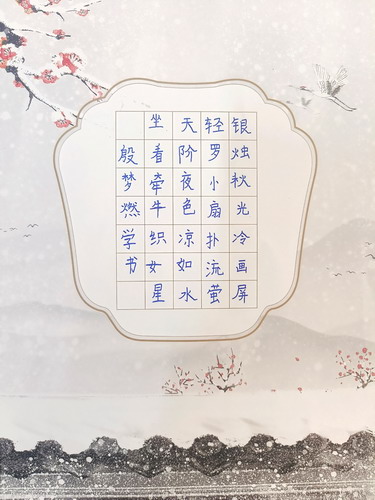 银烛秋光冷画屏
轻罗小扇扑流萤
天阶夜色凉如水
坐看牵牛织女星
殷梦燃学书